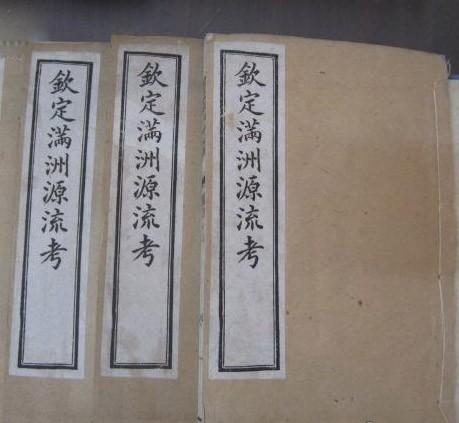 欽定滿洲源流考
欽定滿洲源流考
欽定滿洲源流考